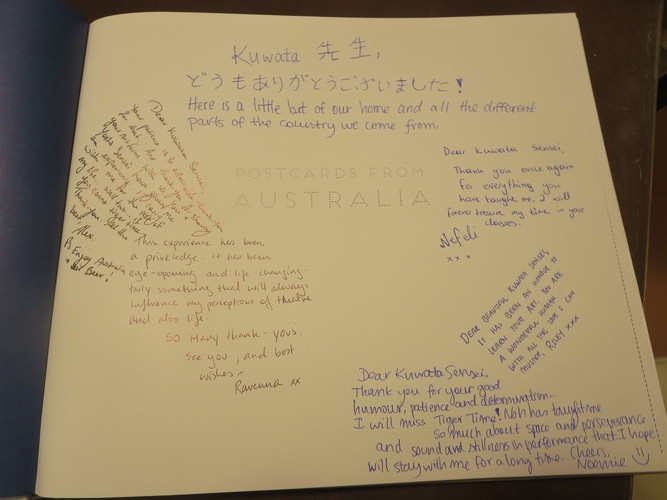 Kuwata 先生,
どうもありがとうございました!
Here is a little bit of our home and all the different
parts of the country we come from.
POSTCARDS FROM
AUSTRALIA
Dear Kuwata Sensei,
Your patience is to
for that
you
Kuwata Sensei have
an experience
with me for the rest of
my life
you
Thank-you
but, Alex
Ps Enjoy Australia
Beer!
This experience has been
a priveledge. it has been
eye-opening and life-changing.
truly something that will always
influence my perceptions of theatre
and also life.
So Many thank-yous.
See you, and best
wishes~
Ravenna xx
Dear Kuwata Sensei,
Thank you once again
for everything you
have taught me. I will
forever treasure my time in your
classes.
Nefeli
x x x
DEAR BEAUTIFUL KUWATA SENSEI,
IT HAS BEEN AN HONOUR TO
LEARN YOUR ART. YOU ARE
A WONDERFUL HUMAN
WITH ALL THE LOVE I CAN
MUSTER, RILEY xxx
Dear Kuwata Sensei,
Thank you for your good
humour, patience and determination.
I will miss Tiger Time! Noh has taught me
so much about space and perseverance
and sound and stillness in performance that I hope
will stay with me for a long time. Cheers,
Noemie